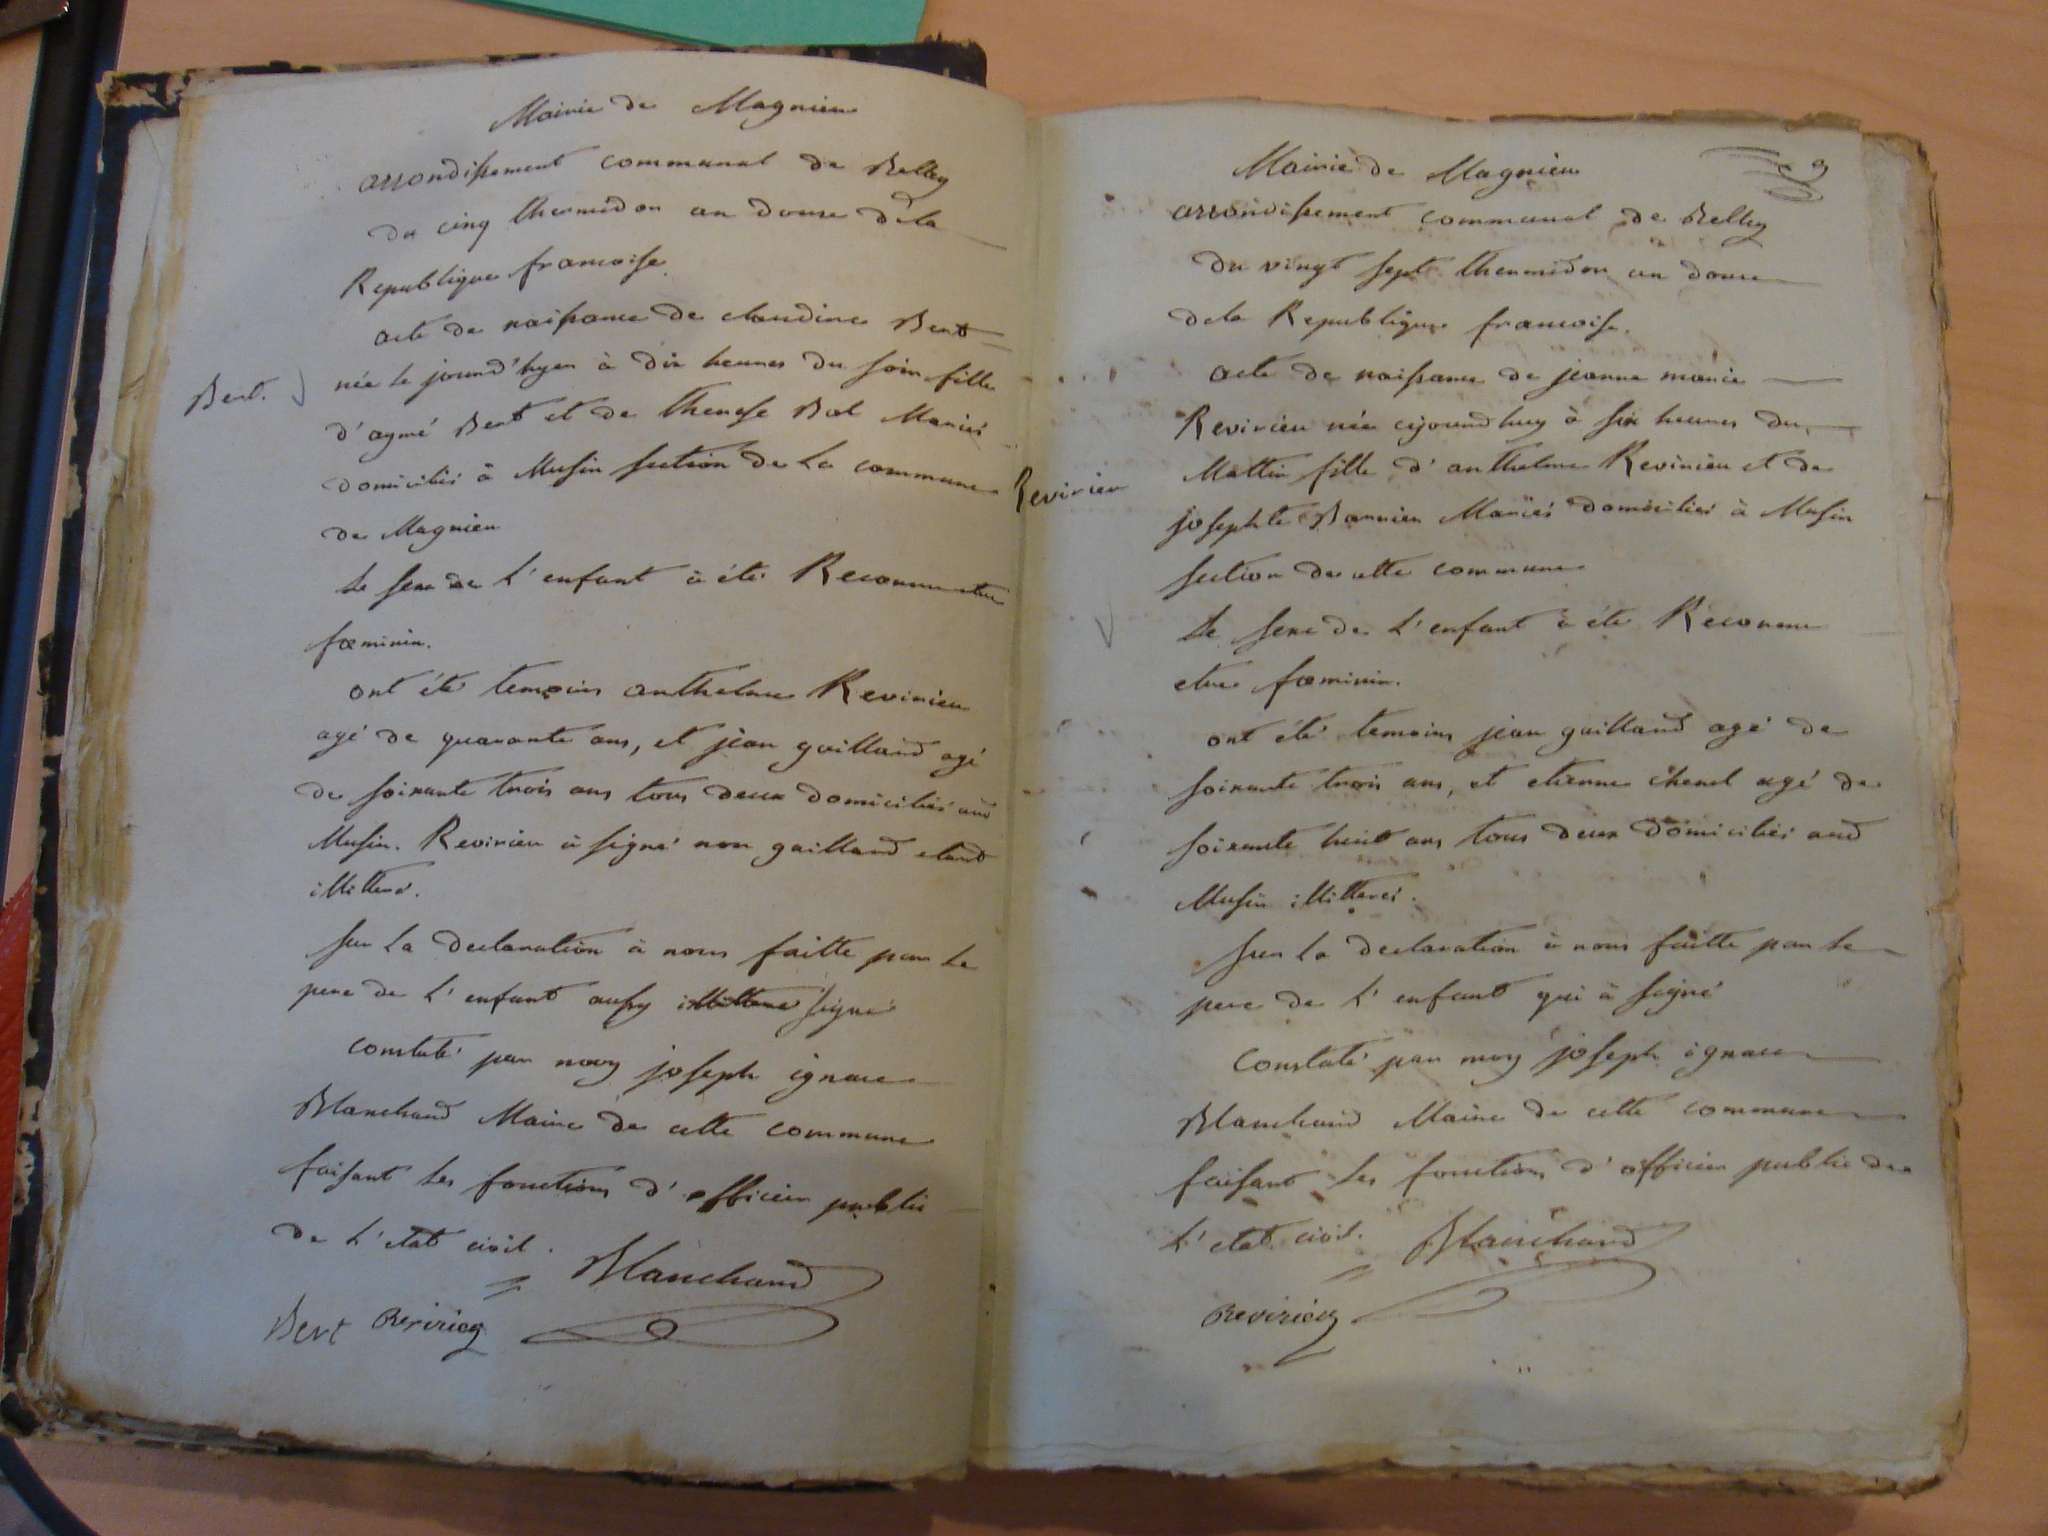 Mairie de Magnieu
arrondissement communal de Belley
du cinq thermidor an douze dela
Republique francoise
acte de naissance de claudine Bert
Bert. née le jourd'hyer à dix heures du soir fille
d'aymé Bert et de therese Bal Mariés
domiciliés à Musin section de la commune
de Magnieu
le sexe de l'enfant à été Reconnu etre
fœminin.
ont été temoins anthelme Revirieu
agé de quarante ans, et jean gaillard agé
de soixante trois ans tous deux domiciliés aud
Musin. Revirieu à signé non gaillard etant
illitteré.
sur la declaration à nous faitte par le
pere de l'enfant aussy signé
constaté par moy joseph ignace
Blanchard Maire de cette commune
faisant les fonctions d'officier public
de l'etat civil. Blanchard
Bert Reviriey
9
Mairie de Magnieu
arrondissement communal de Belley
du vingt sept thermidor an douze
dela Republique francoise.
acte de naissance de jeanne marie
Revirieu née cejourdhuy à six heures du
Revirieu
Mattin fille d'anthelme Revirieu et de
josephte Bannieu Mariés domiciliés à Musin
section de cette commune
le sexe de l'enfant à été Reconnu
etre fœminin.
ont été temoins jean gaillard agé de
soixante trois ans, et etienne chenel agé de
soixante huit ans tous deux domiciliés aud
Musin illitterés.
sur la declaration à nous faitte par le
pere de l'enfant qui à signé
Constaté par moy joseph ignace
Blanchard Maire de cette commune
faisant les fonctions d'officier public de
l'etat civil. Blanchard
Reviriey